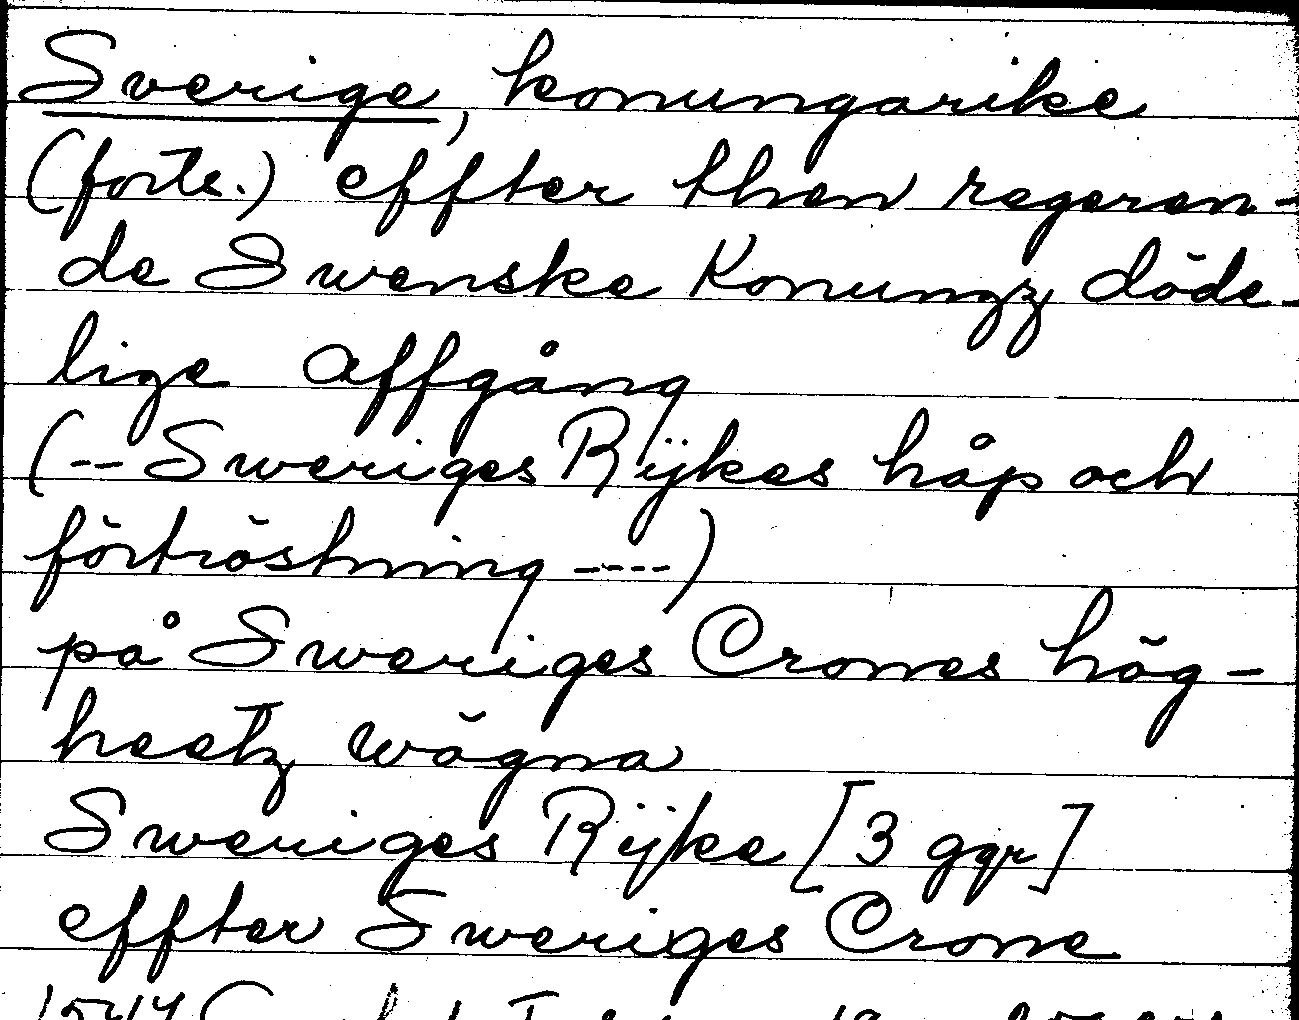 Sverige, konungarike
(forts.) effter then regeran-
de Swenske Konungz döde-
lige affgång
(-- Sweriges Rijkes håp och
förtröstning ----)
på Sweriges Crones hög-
heetz wägna
Sweriges Rijke [3 ggr]
effter Sweriges Crone